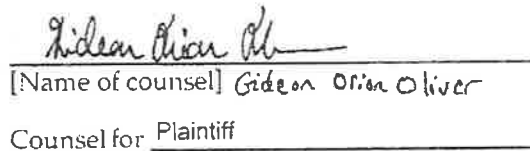 Gideon Orion Oliver
[Name of counsel] Gideon Orion Oliver
Counsel for Plaintiff